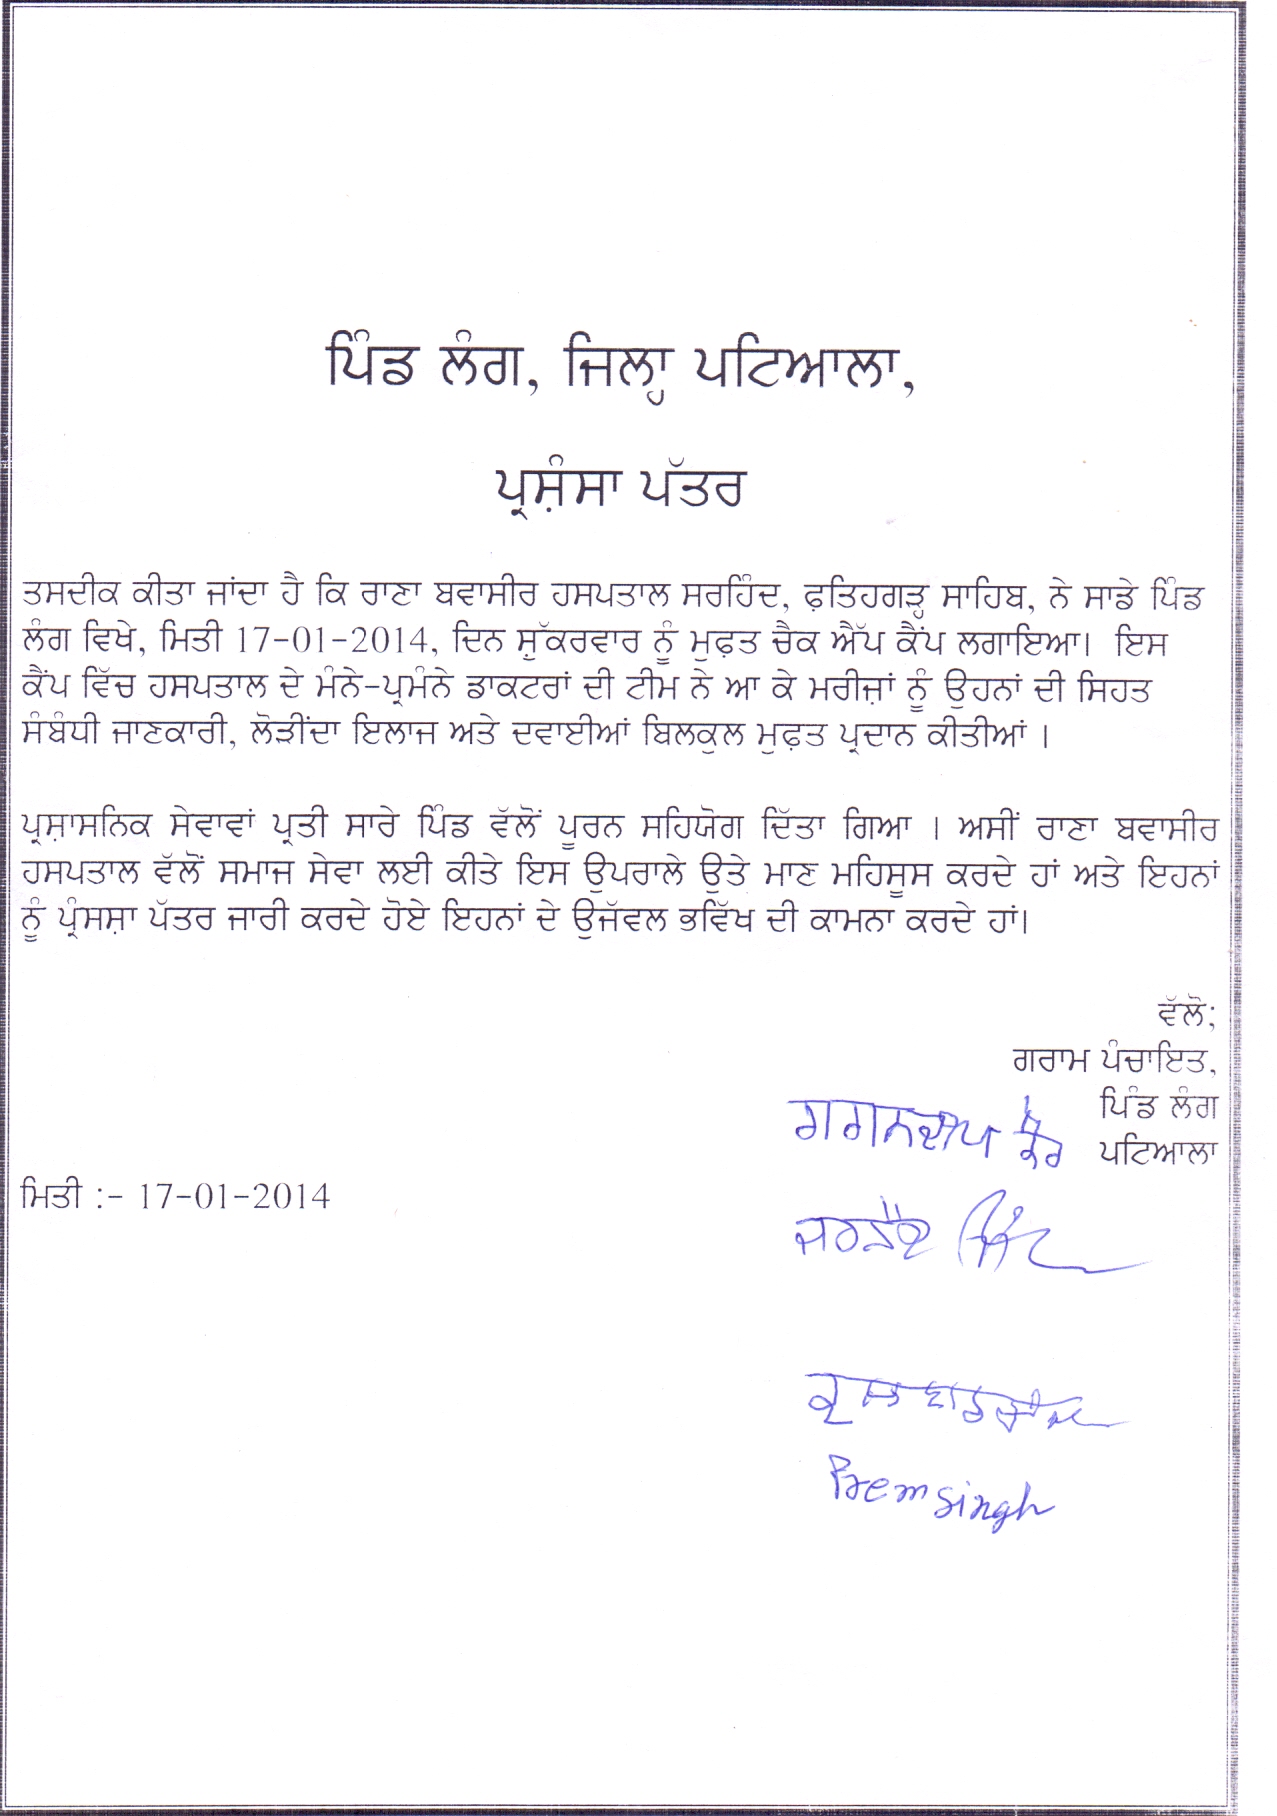 ਪਿੰਡ ਲੰਗ, ਜਿਲ੍ਹਾ ਪਟਿਆਲਾ,
ਪ੍ਰਸ਼ੰਸਾ ਪੱਤਰ
ਤਸਦੀਕ ਕੀਤਾ ਜਾਂਦਾ ਹੈ ਕਿ ਰਾਣਾ ਬਵਾਸੀਰ ਹਸਪਤਾਲ ਸਰਹਿੰਦ, ਫ਼ਤਿਹਗੜ੍ਹ ਸਾਹਿਬ, ਨੇ ਸਾਡੇ ਪਿੰਡ
ਲੰਗ ਵਿਖੇ, ਮਿਤੀ 17-01-2014, ਦਿਨ ਸ਼ੁੱਕਰਵਾਰ ਨੂੰ ਮੁਫ਼ਤ ਚੈਕ ਐੱਪ ਕੈਂਪ ਲਗਾਇਆ। ਇਸ
ਕੈਂਪ ਵਿੱਚ ਹਸਪਤਾਲ ਦੇ ਮੰਨੇ-ਪ੍ਰਮੰਨੇ ਡਾਕਟਰਾਂ ਦੀ ਟੀਮ ਨੇ ਆ ਕੇ ਮਰੀਜ਼ਾਂ ਨੂੰ ਉਹਨਾਂ ਦੀ ਸਿਹਤ
ਸੰਬੰਧੀ ਜਾਣਕਾਰੀ, ਲੋੜੀਂਦਾ ਇਲਾਜ ਅਤੇ ਦਵਾਈਆਂ ਬਿਲਕੁਲ ਮੁਫ਼ਤ ਪ੍ਰਦਾਨ ਕੀਤੀਆਂ ।
ਪ੍ਰਸ਼ਾਸਨਿਕ ਸੇਵਾਵਾਂ ਪ੍ਰਤੀ ਸਾਰੇ ਪਿੰਡ ਵੱਲੋਂ ਪੂਰਨ ਸਹਿਯੋਗ ਦਿੱਤਾ ਗਿਆ । ਅਸੀਂ ਰਾਣਾ ਬਵਾਸੀਰ
ਹਸਪਤਾਲ ਵੱਲੋਂ ਸਮਾਜ ਸੇਵਾ ਲਈ ਕੀਤੇ ਇਸ ਉਪਰਾਲੇ ਉਤੇ ਮਾਣ ਮਹਿਸੂਸ ਕਰਦੇ ਹਾਂ ਅਤੇ ਇਹਨਾਂ
ਨੂੰ ਪ੍ਰੰਸਸ਼ਾ ਪੱਤਰ ਜਾਰੀ ਕਰਦੇ ਹੋਏ ਇਹਨਾਂ ਦੇ ਉਜੱਵਲ ਭਵਿੱਖ ਦੀ ਕਾਮਨਾ ਕਰਦੇ ਹਾਂ।
ਵੱਲੋ;
ਗਰਾਮ ਪੰਚਾਇਤ,
ਪਿੰਡ ਲੰਗ
ਗਗਨਦੀਪ ਕੌਰ ਪਟਿਆਲਾ
ਮਿਤੀ :- 17-01-2014
Prem singh